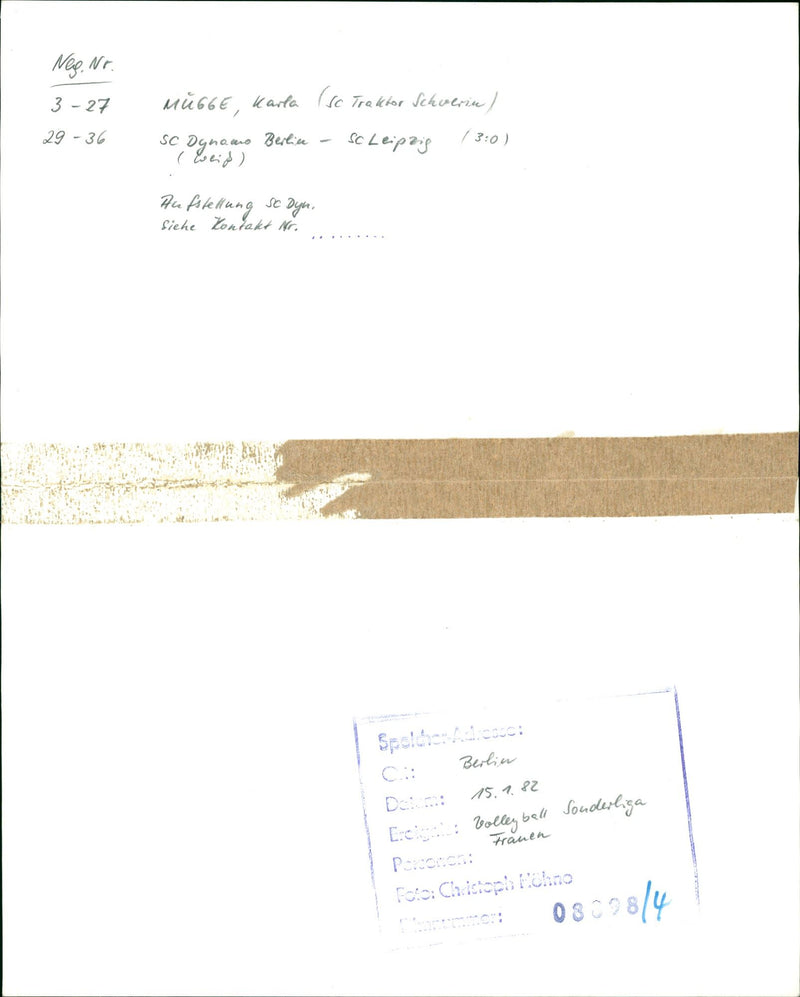 Neg. Nr.
3 - 27 MÜGGE, Karla (SC Traktor Schwerin)
29 - 36 SC Dynamo Berlin - SC Leipzig (3:0)
(weiß)
Aufstellung SC Dyn.
Siehe Kontakt Nr. ..........
Speicher-Adresse:
Ort: Berlin
Datum: 15.1.82
Ereignis: Volleyball Sonderliga
Frauen
Personen:
Foto: Christoph Höhne
Filmnummer: /4